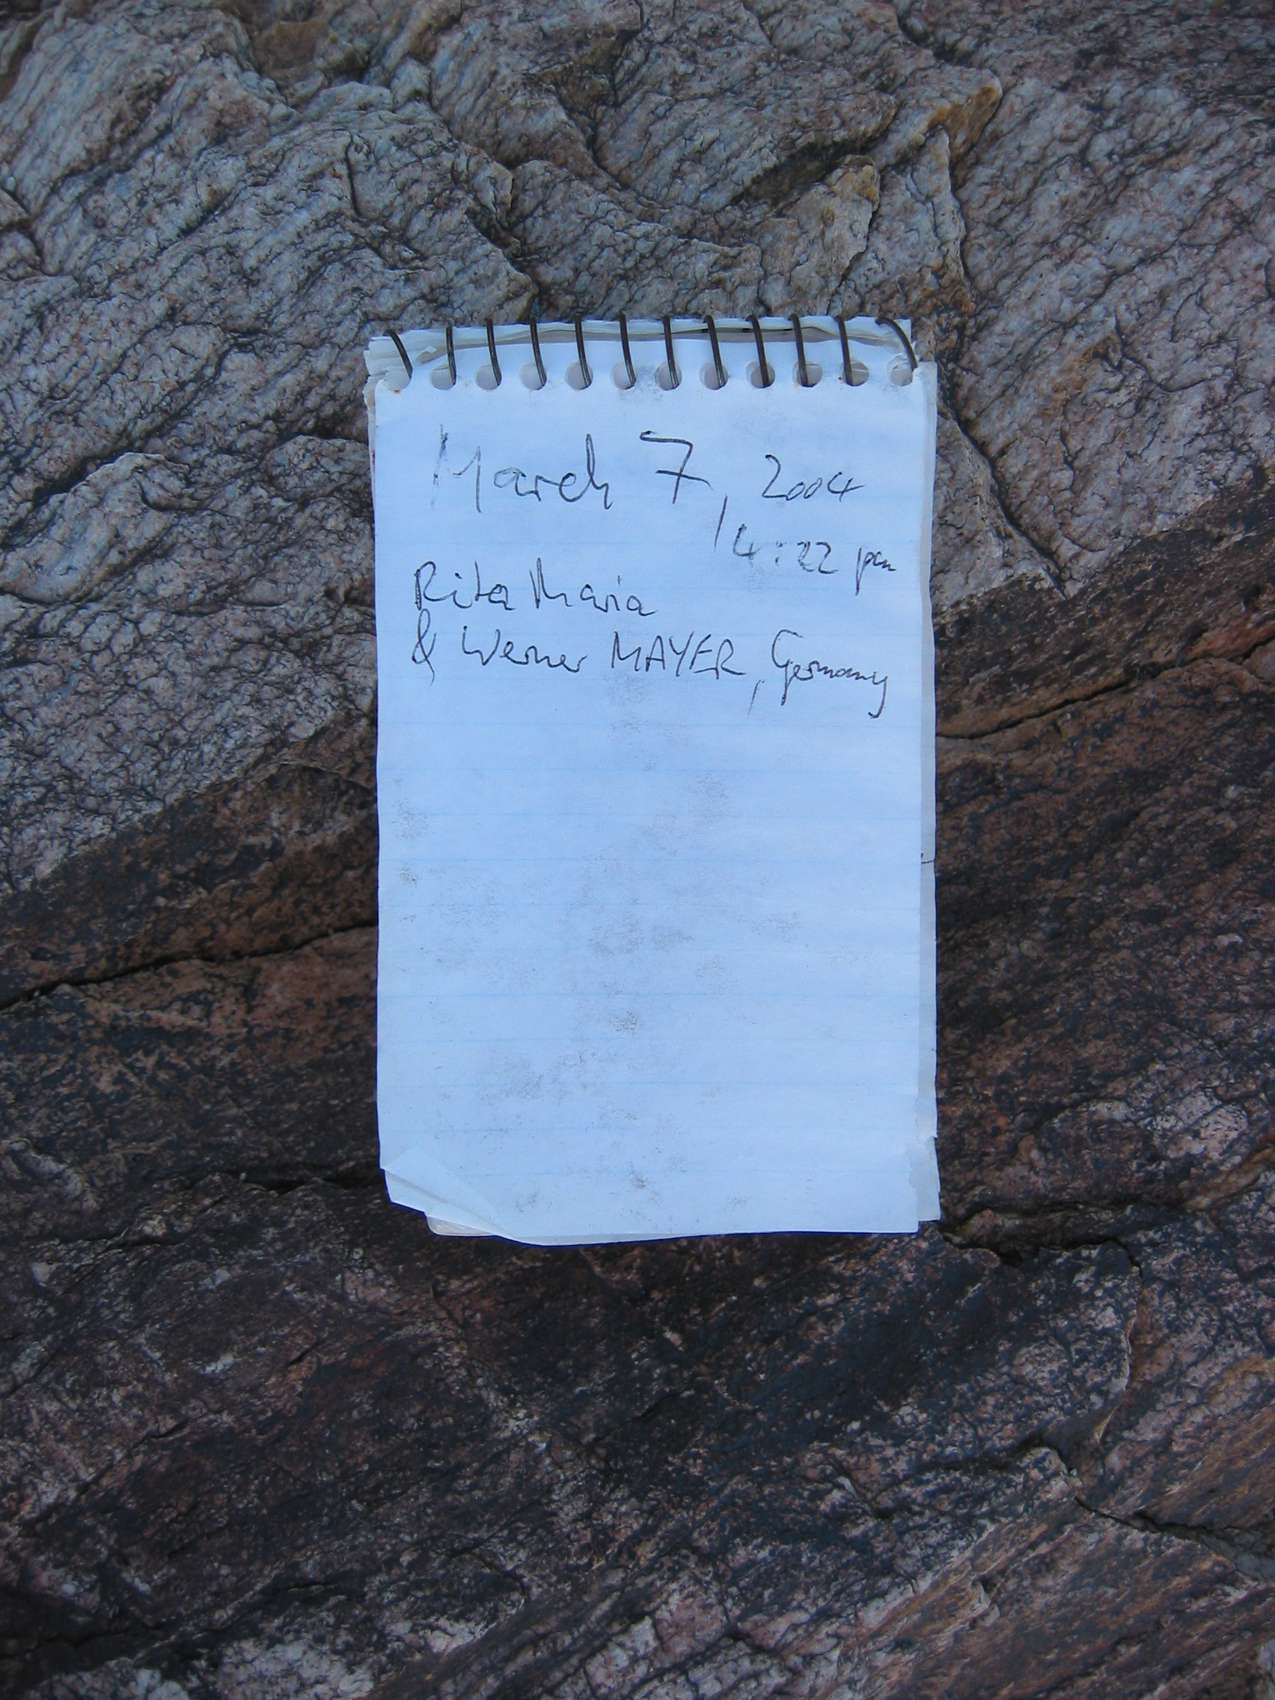 March 7, 2004
4:22 pm
Rita Maria
& Werner MAYER, Germany